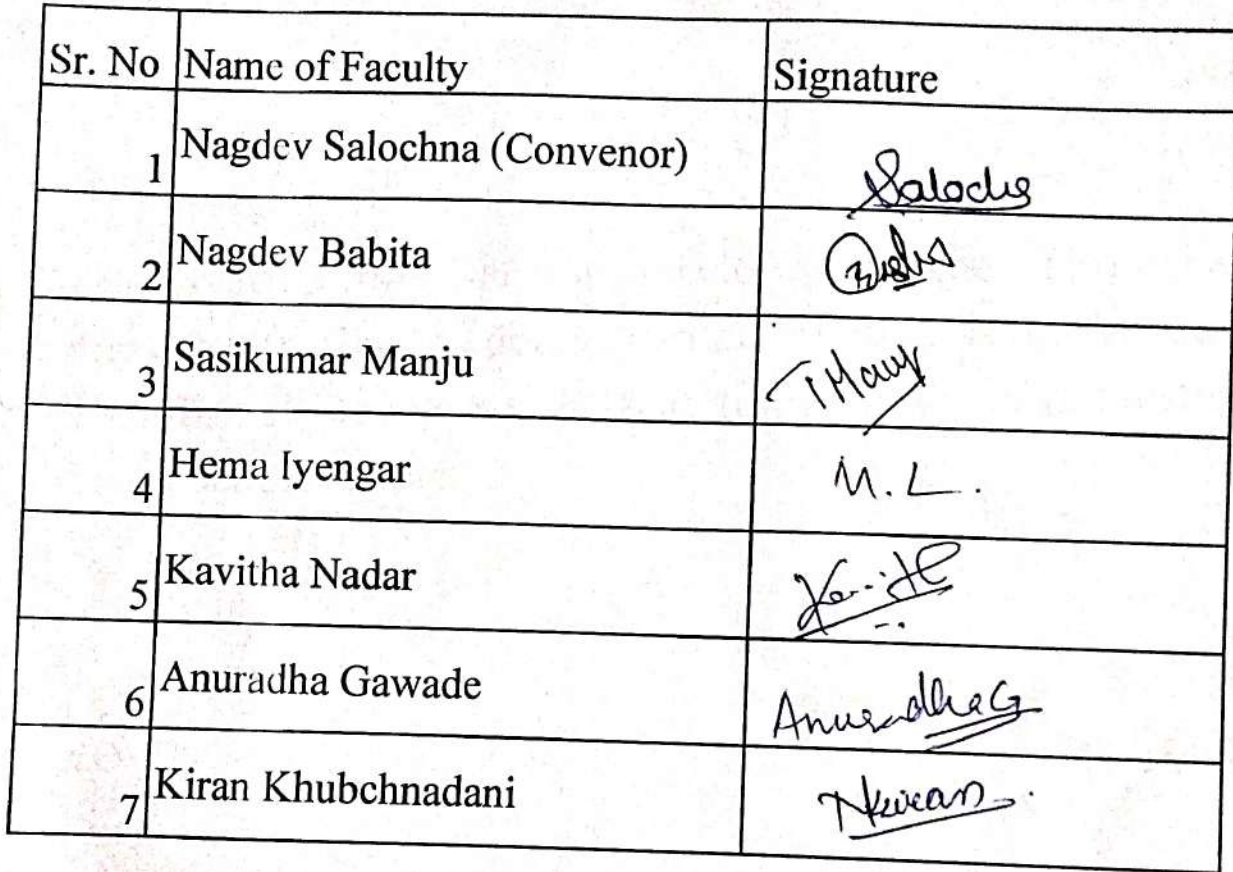 Sr. No Name of Faculty Signature
1 Nagdev Salochna (Convenor) Salochna
2 Nagdev Babita
3 Sasikumar Manju
4 Hema Iyengar M. L.
5 Kavitha Nadar
6 Anuradha Gawade AnuradhaG
7 Kiran Khubchnadani NKiran